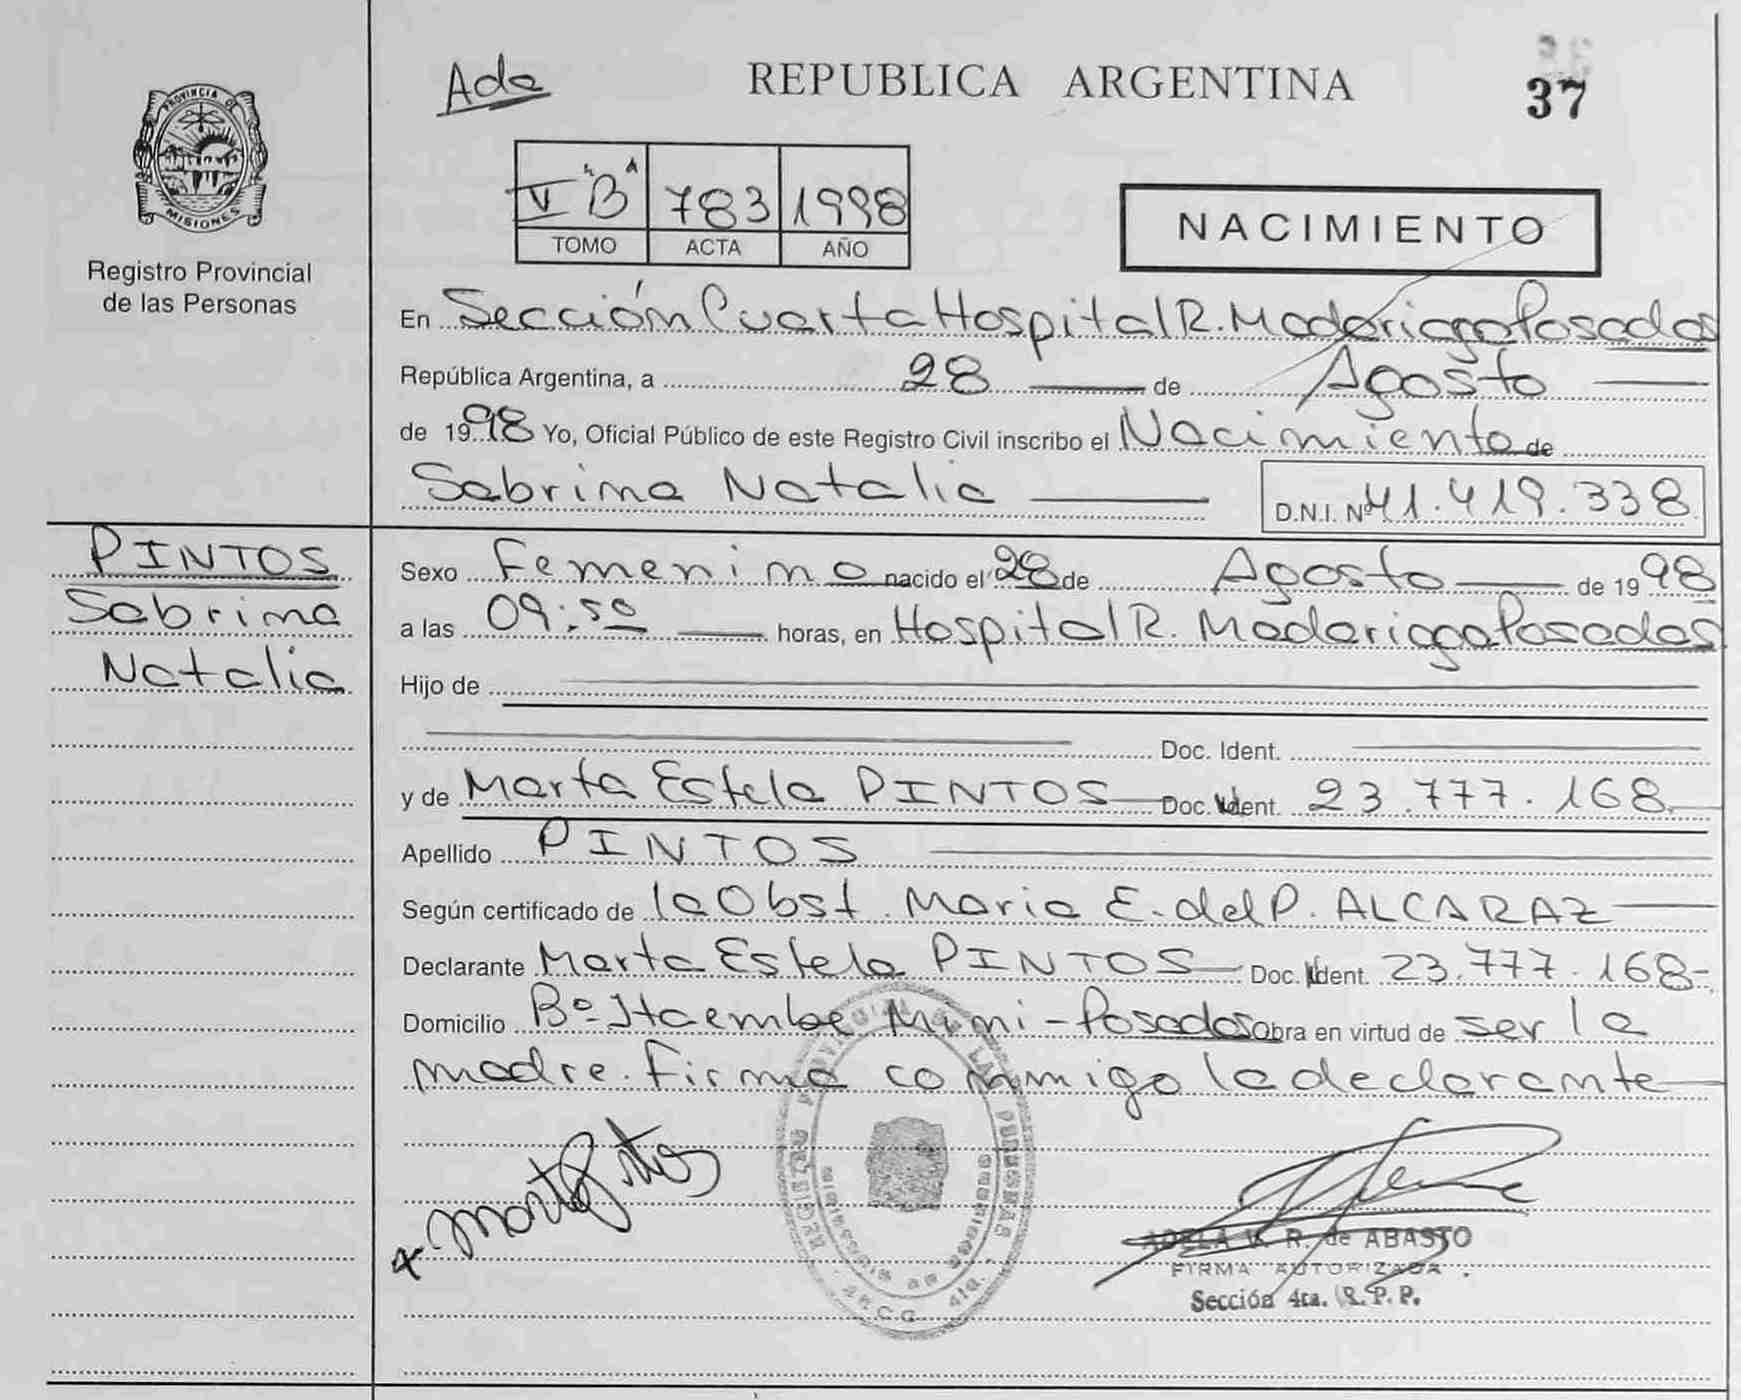 Ada
REPUBLICA ARGENTINA
37
PROVINCIA DE
MISIONES
Registro Provincial
de las Personas
V "B" 783 1998
TOMO ACTA AÑO
NACIMIENTO
En Sección Cuarta Hospital R. Madariaga Posadas
República Argentina, a 28 de Agosto
de 1998 Yo, Oficial Público de este Registro Civil inscribo el Nacimiento de
Sabrina Natalia
D.N.I. Nº 41.419.338
PINTOS
Sabrina
Natalia
Sexo Femenino nacido el 28 de Agosto de 1998
a las 09:50 horas, en Hospital R. Madariaga Posadas
Hijo de
Doc. Ident.
y de Marta Estela PINTOS Doc. Ident. 23.777.168
Apellido PINTOS
Según certificado de la Obst. Maria E. del P. ALCARAZ
Declarante Marta Estela PINTOS Doc. Ident. 23.777.168
Domicilio Bº Itaembe Mini - Posadas obra en virtud de ser la
madre. Firma conmigo la declarante
Marta Pintos
ADELA V. R. de ABASTO
FIRMA AUTORIZADA
Sección 4ta. R. P. P.